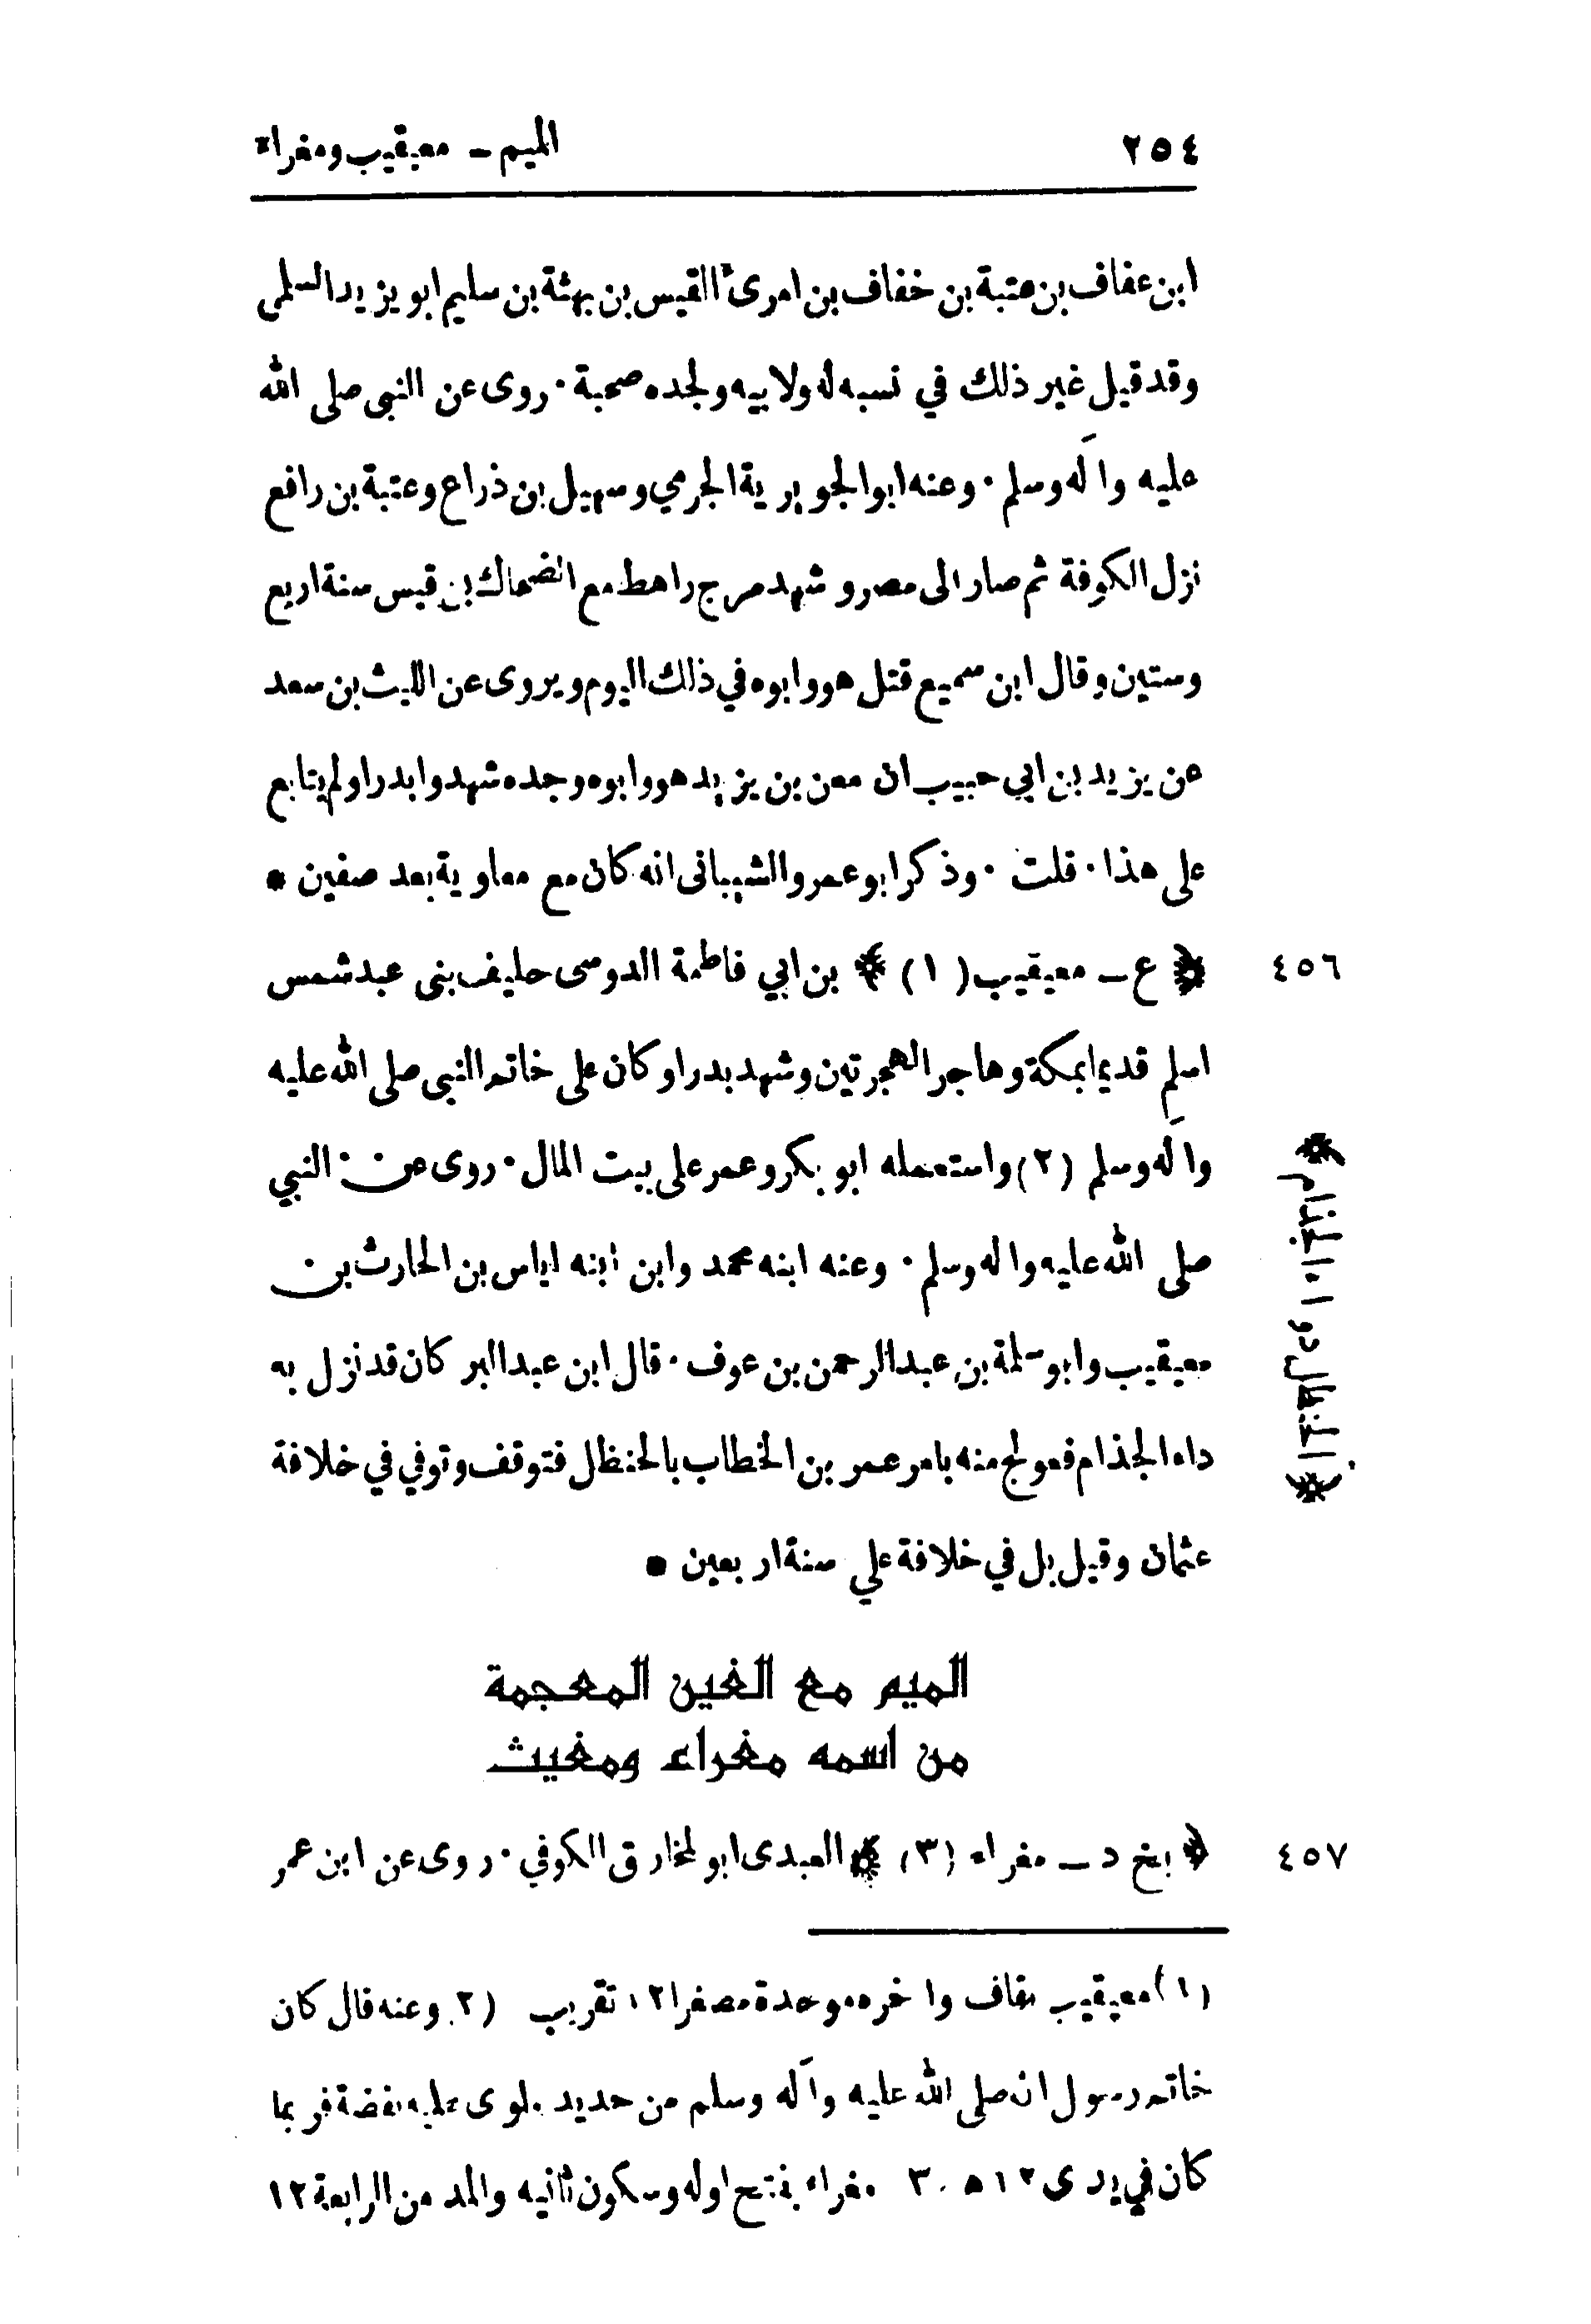 ٢٥٤ الميم – معيقيب ومغراء
ابن عفاف بن عتبة بن خفاف بن امرئ القيس بن بهثة بن سليم ابو يزيد السلمى
وقد قيل غير ذلك في نسبه له ولابيه ولجده صحبة ۰ روى عن النبى صلى الله
عليه وآله وسلم ۰ وعنه ابو الجويرية الجرمي وسهيل بن ذراع وعتبة بن رافع
نزل الكوفة ثم صار الى مصر و شهد مرج راهط مع الضحاك بن قيس سنة اربع
وستين وقال ابن سميع قتل هو وابوه في ذلك اليوم ويروى عن الليث بن سعد
عن يزيد بن ابي حبيب ان معن بن يزيد هو وابوه وجده شهدوا بدرا ولم يتابع
على هذا ۰ قلت ۰ وذكر ابو عمرو الشيبانى انه كان مع معاوية بعد صفين *
٤٥٦ ﴿ ع – معيقيب (١) ﴾ بن ابي فاطمة الدوسى حليف بنى عبد شمس
اسلم قديما بمكة وهاجر الهجرتين وشهد بدرا وكان على خاتم النبى صلى الله عليه
وآله وسلم (٢) واستعمله ابو بكر وعمر على بيت المال ۰ روى عن النبي
صلى الله عليه واله وسلم ۰ وعنه ابنه محمد وابن ابنه اياس بن الحارث بن
معيقيب وابو سلمة بن عبد الرحمن بن عوف ۰ قال ابن عبد البر كان قد نزل به
داء الجذام فعولج منه بامر عمر بن الخطاب بالحنظل فتوقف وتوفي في خلافة
عثمان وقيل بل في خلافة علي سنة اربعين *
﴿ الحنظل دواء الجذام ﴾
الميم مع الغين المعجمة
من اسمه مغراء ومغيث
٤٥٧ ﴿ بخ د – مغراء (٣) ﴾ العبدى ابو المخارق الكوفي ۰ روى عن ابن عمر
(١) معيقيب بقاف وآخره موحدة مصغرا ١٢ تقريب (٢) وعنه قال كان
خاتم رسول الله صلى الله عليه وآله وسلم من حديد ملوى عليه بفضة فربما
كان في يدى ١٢ ه ٣ مغراء بفتح اوله وسكون ثانيه والمد من الرابعة ١٢